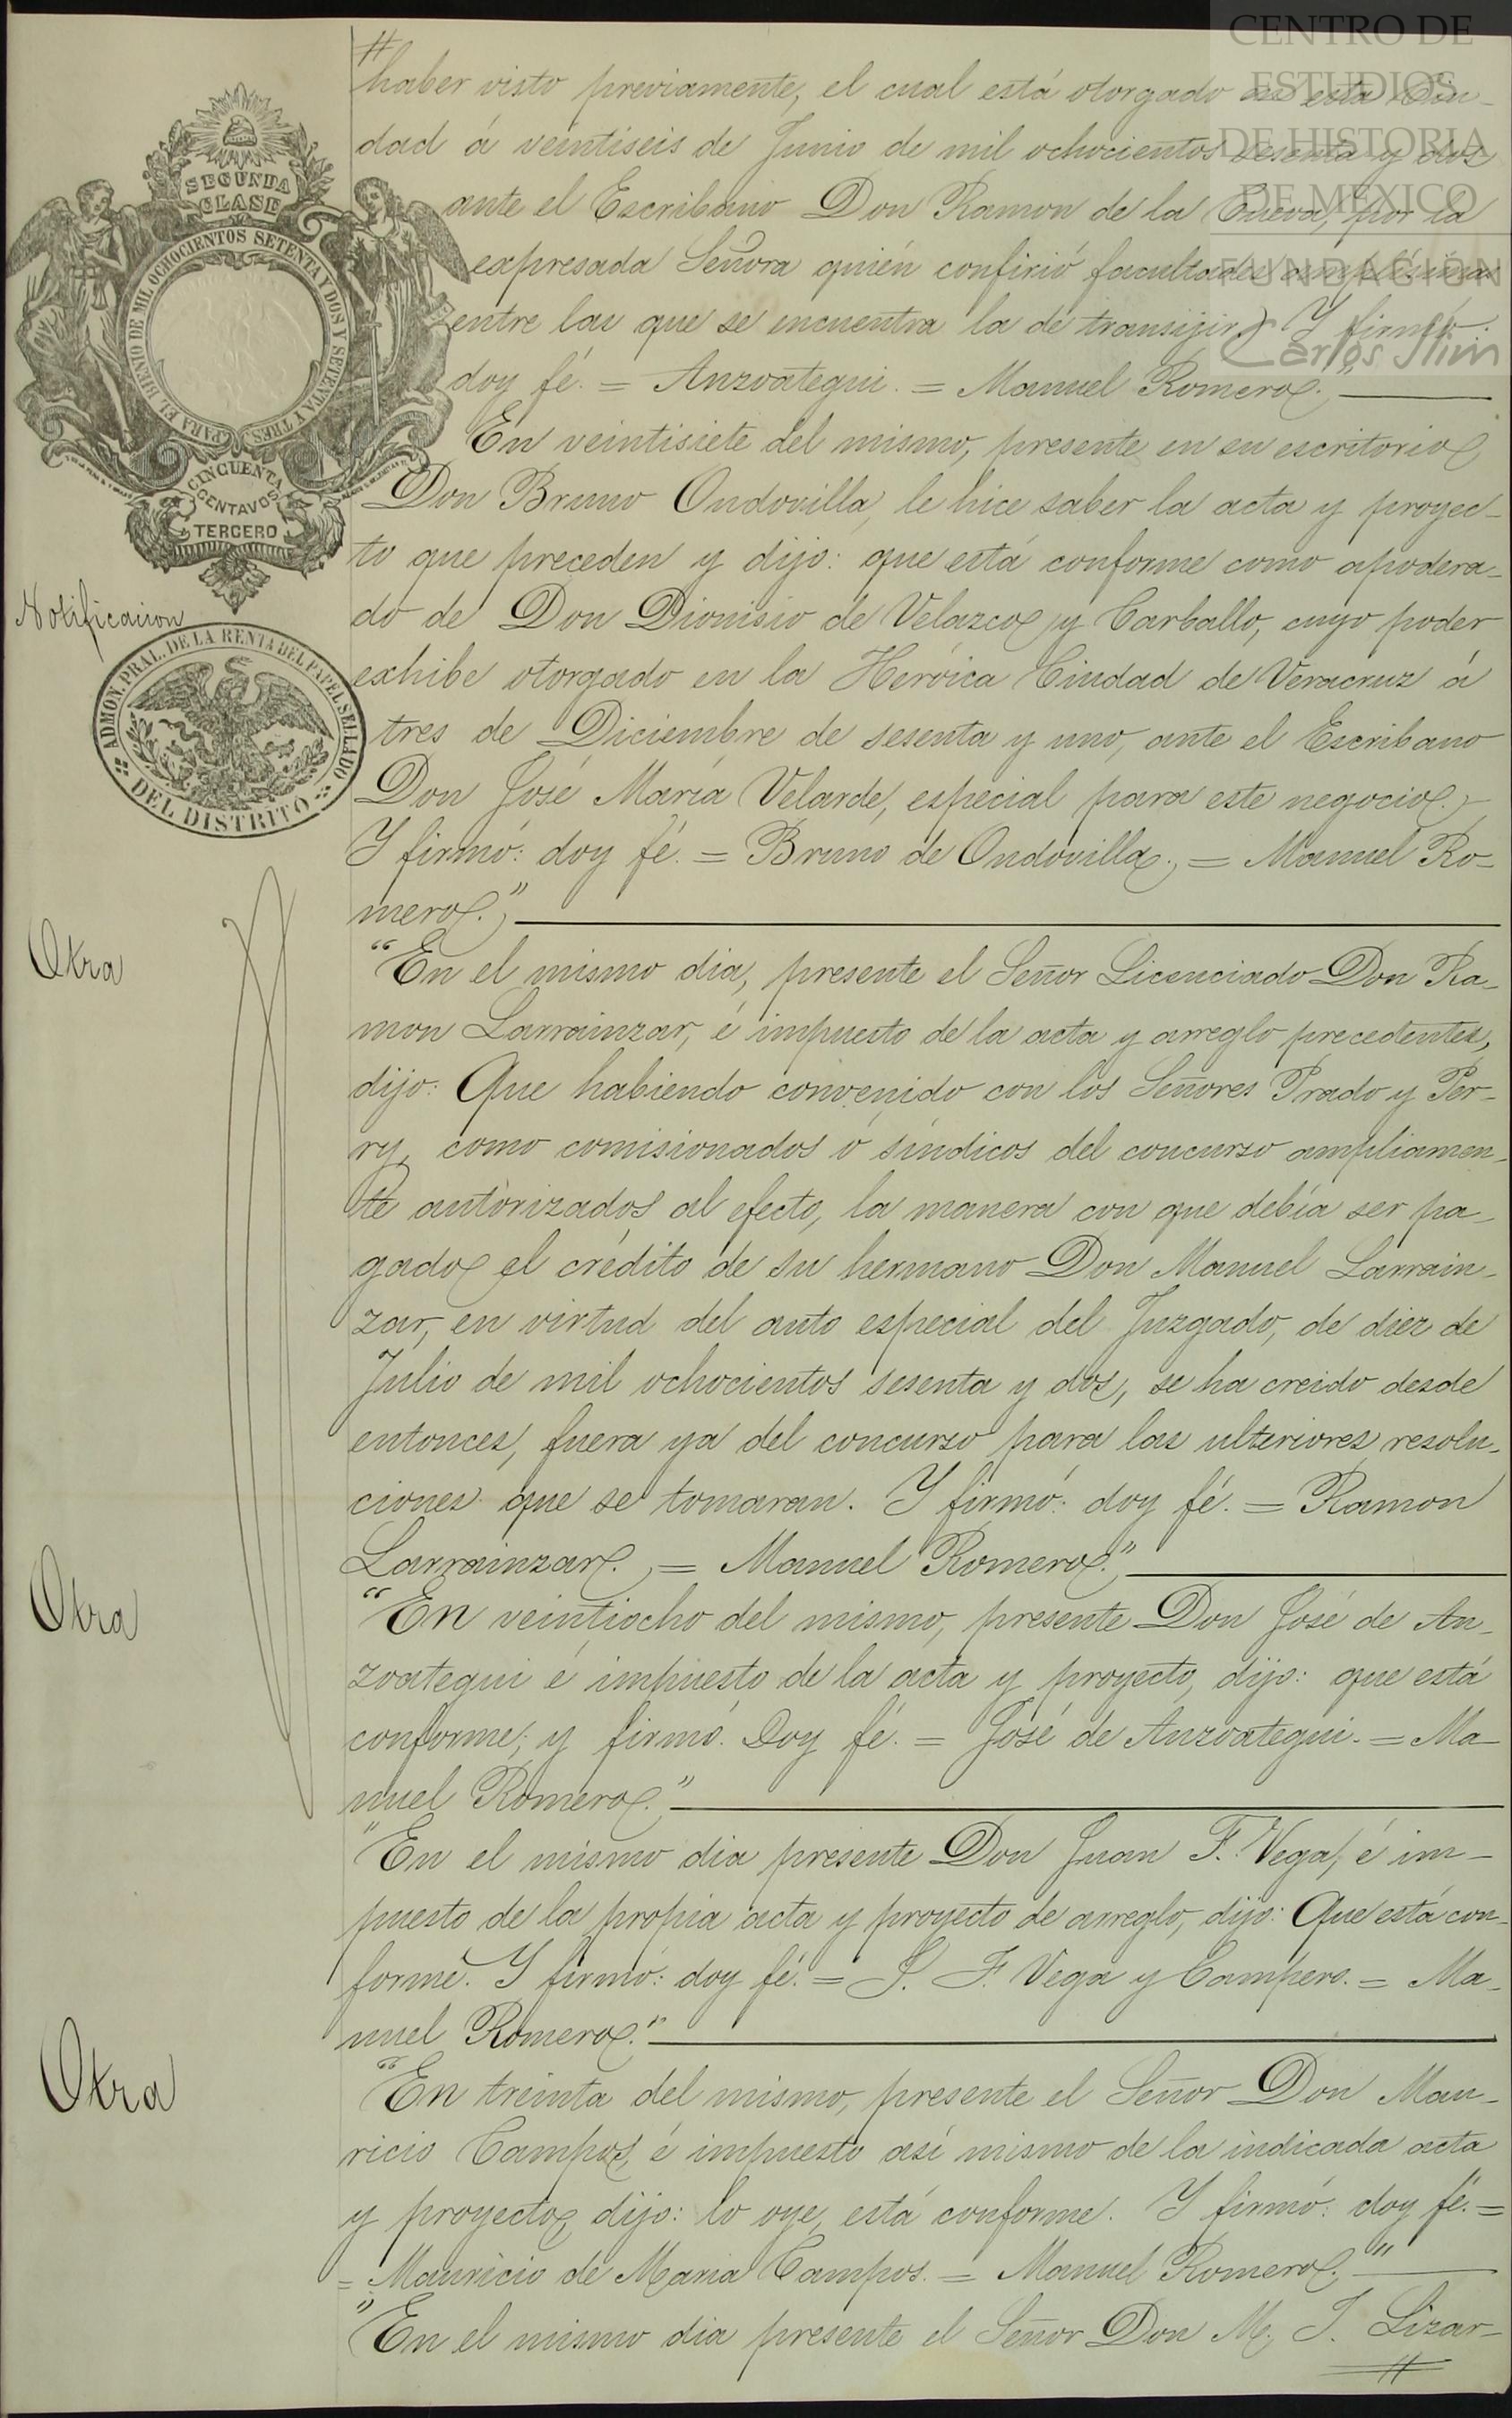 CENTRO DE
ESTUDIOS
DE HISTORIA
DE MEXICO
FUNDACIÓN
Carlos Slim
SEGUNDA
CLASE
PARA EL BIENIO DE MIL OCHOCIENTOS SETENTA Y DOS Y SETENTA Y TRES
CINCUENTA
CENTAVOS
TERCERO
haber visto previamente, el cual está otorgado en esta Ciu-
dad á veintiseis de Junio de mil ochocientos sesenta y dos
ante el Escribano Don Ramon de la Cueva, por la
expresada Señora quién confirió facultades amplísimas
entre las que se encuentra la de transijir. Y firmó:
doy fé. = Anzoategui. = Manuel Romero."
En veintisiete del mismo, presente en su escritorio
Don Bruno Ondovilla, le hice saber la acta y proyec-
to que preceden y dijo: que está conforme como apodera-
Notificacion
do de Don Dionisio de Velazco y Carballo, cuyo poder
exhibe otorgado en la Heróica Ciudad de Veracruz á
tres de Diciembre de sesenta y uno, ante el Escribano
Don José María Velarde, especial para este negocio.
Y firmó: doy fé. = Bruno de Ondovilla. = Manuel Ro-
mero."
ADMON. PRAL. DE LA RENTA DEL PAPEL SELLADO
DEL DISTRITO
Otra
"En el mismo dia, presente el Señor Licenciado Don Ra-
mon Larrainzar, é impuesto de la acta y arreglo precedentes,
dijo: Que habiendo convenido con los Señores Prado y Per-
ry, como comisionados ó síndicos del concurso ampliamen-
te autorizados al efecto, la manera con que debía ser pa-
gado el crédito de su hermano Don Manuel Larrain-
zar, en virtud del auto especial del Juzgado, de diez de
Julio de mil ochocientos sesenta y dos, se ha creido desde
entonces, fuera ya del concurso para las ulteriores resolu-
ciones que se tomaran. Y firmó: doy fé. = Ramon
Larrainzar. = Manuel Romero."
Otra
"En veintiocho del mismo, presente Don José de An-
zoategui é impuesto de la acta y proyecto, dijo: que está
conforme; y firmó. Doy fé. = José de Anzoategui. = Ma-
nuel Romero."
"En el mismo dia presente Don Juan F. Vega, é im-
puesto de la propia acta y proyecto de arreglo, dijo: Que está con-
forme. Y firmó: doy fé. = J. F. Vega y Campero. = Ma-
nuel Romero."
Otra
"En treinta del mismo, presente el Señor Don Mau-
ricio Campos, é impuesto así mismo de la indicada acta
y proyecto, dijo: lo oye, está conforme. Y firmó: doy fé. =
= Mauricio de Maria Campos. = Manuel Romero."
"En el mismo dia presente el Señor Don M. J. Lizar-